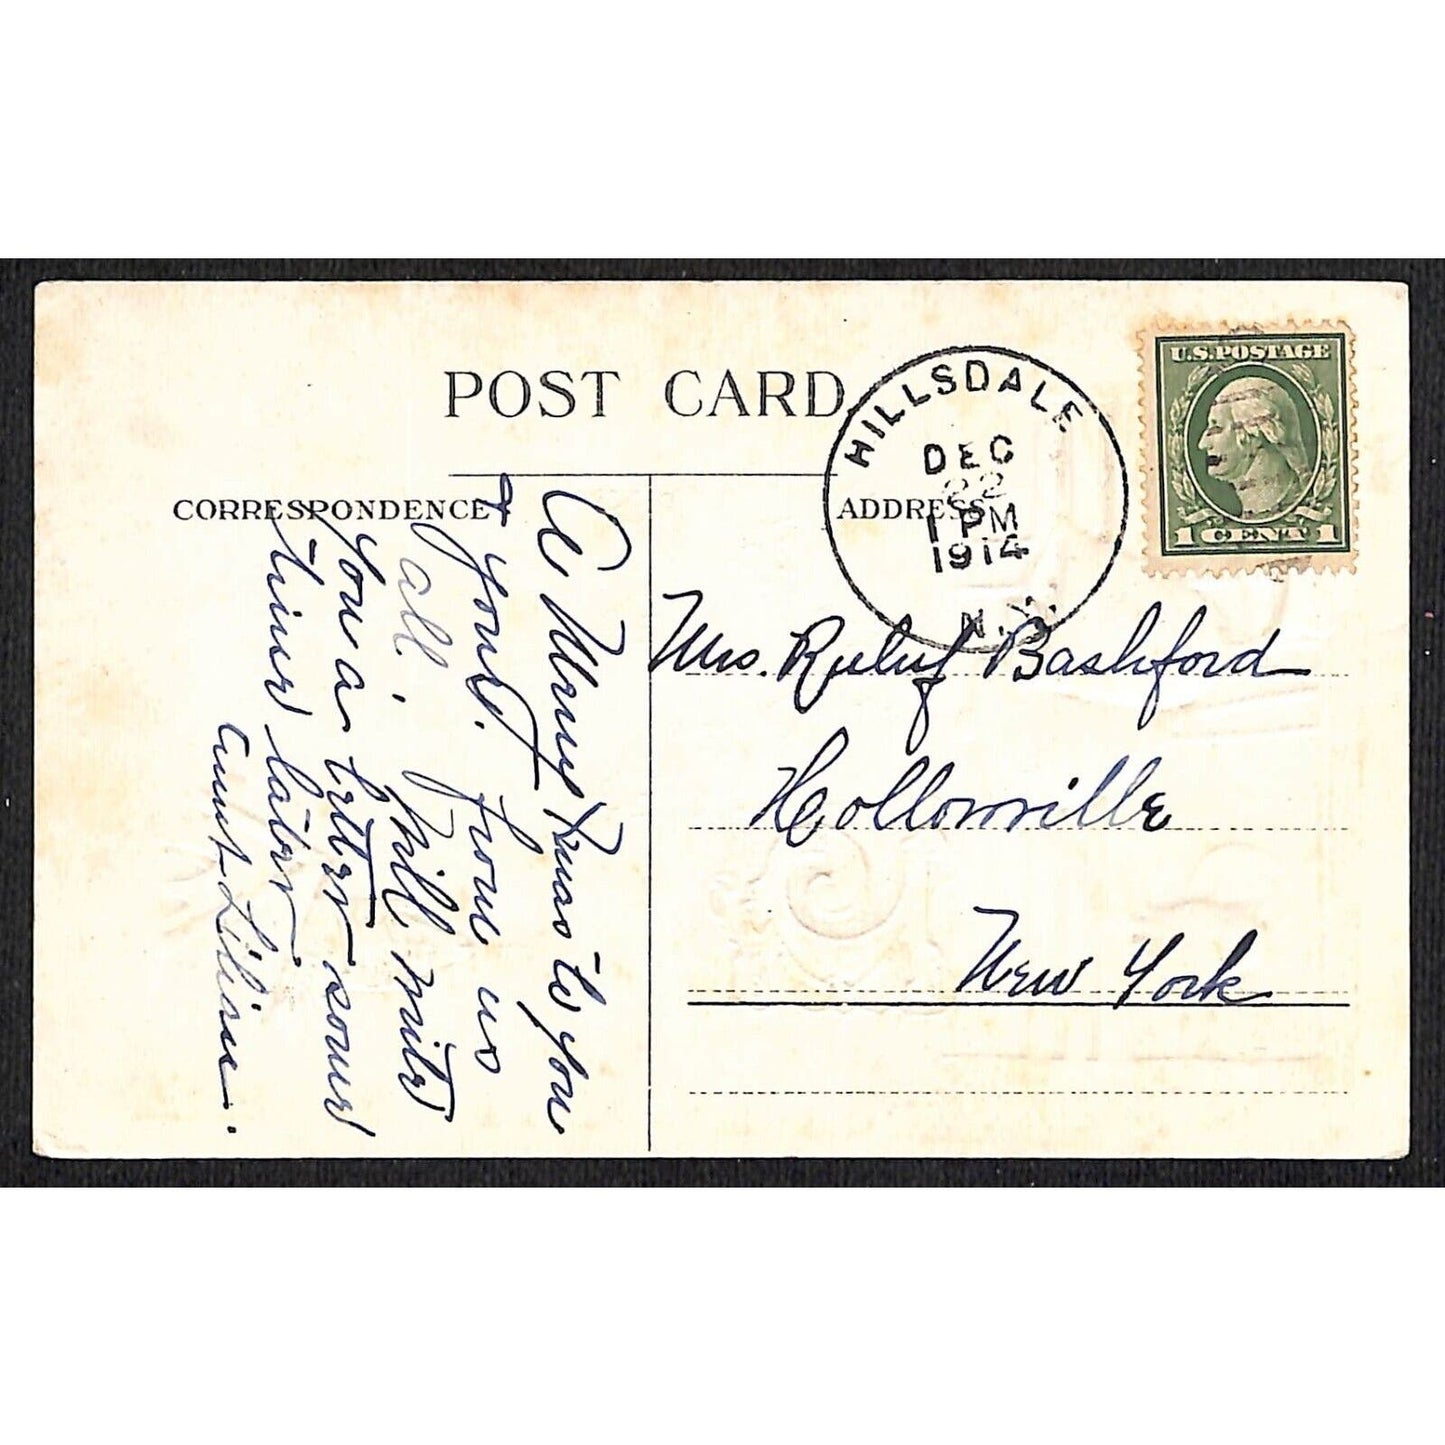 POST CARD
CORRESPONDENCE
ADDRESS
HILLSDALE
DEC
22
1 PM
1914
N.Y.
U.S. POSTAGE
1 CENT 1
A Merry Xmas to you
+ yours. from us
all. Will write
you a letter some
time later
Aunt Lilian.
Mrs. Ruluf Bashford
Hollowville
New York